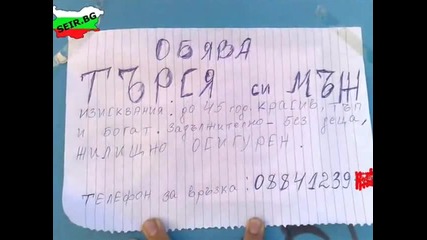 SEIR.BG
ОБЯВА
ТЪРСЯ си МЪЖ
изисквания: до 45 год. красив, тъп
и богат. Задължително - без деца,
жилищно осигурен.
Телефон за връзка: 08841239